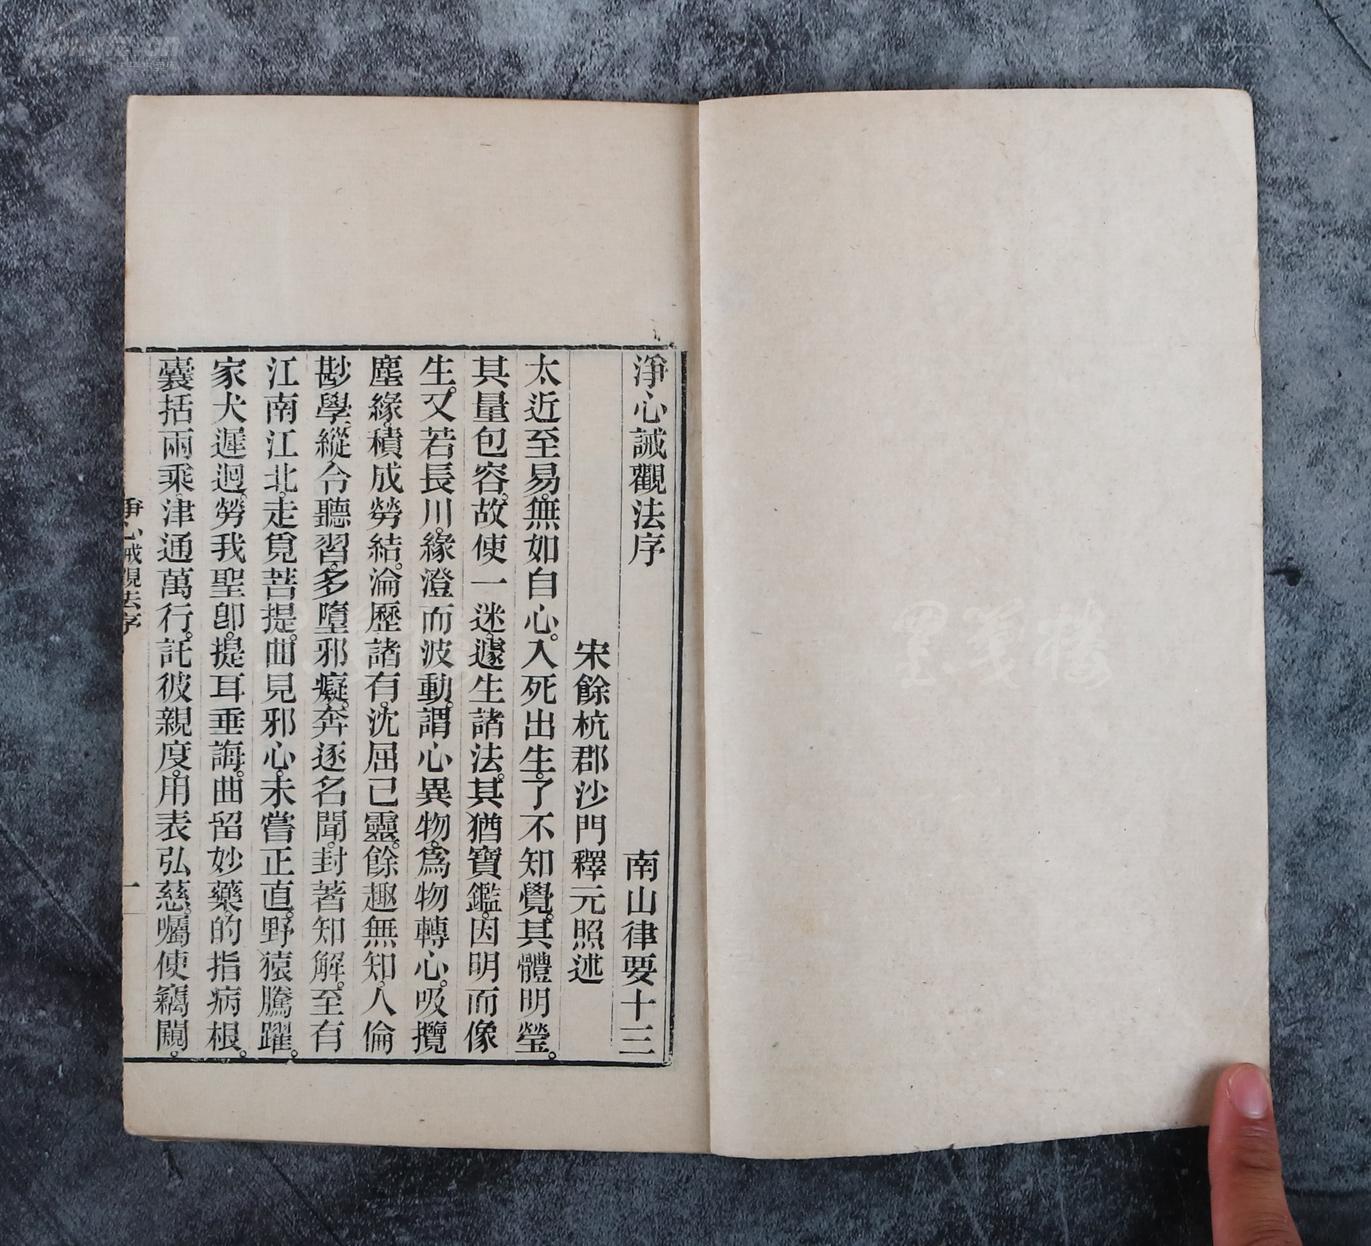 淨心誡觀法序 南山律要十三
宋餘杭郡沙門釋元照述
太近至易。無如自心。入死出生。了不知覺。其體明瑩。
其量包容。故使一迷。遽生諸法。其猶寶鑑。因明而像
生。又若長川。緣澄而波動。謂心異物。爲物轉心。吸攬
塵緣。積成勞結。淪歷諸有。沈屈己靈。餘趣無知。人倫
尠學。縱令聽習。多墮邪癡。奔逐名聞。封著知解。至有
江南江北。走覓菩提。曲見邪心。未嘗正直。野猿騰躍。
家犬遲迴。勞我聖師。提耳垂誨。曲留妙藥。的指病根。
囊括兩乘。津通萬行。託彼親度。用表弘慈。囑使竊闚。
淨心誡觀法序 一
墨箋樓